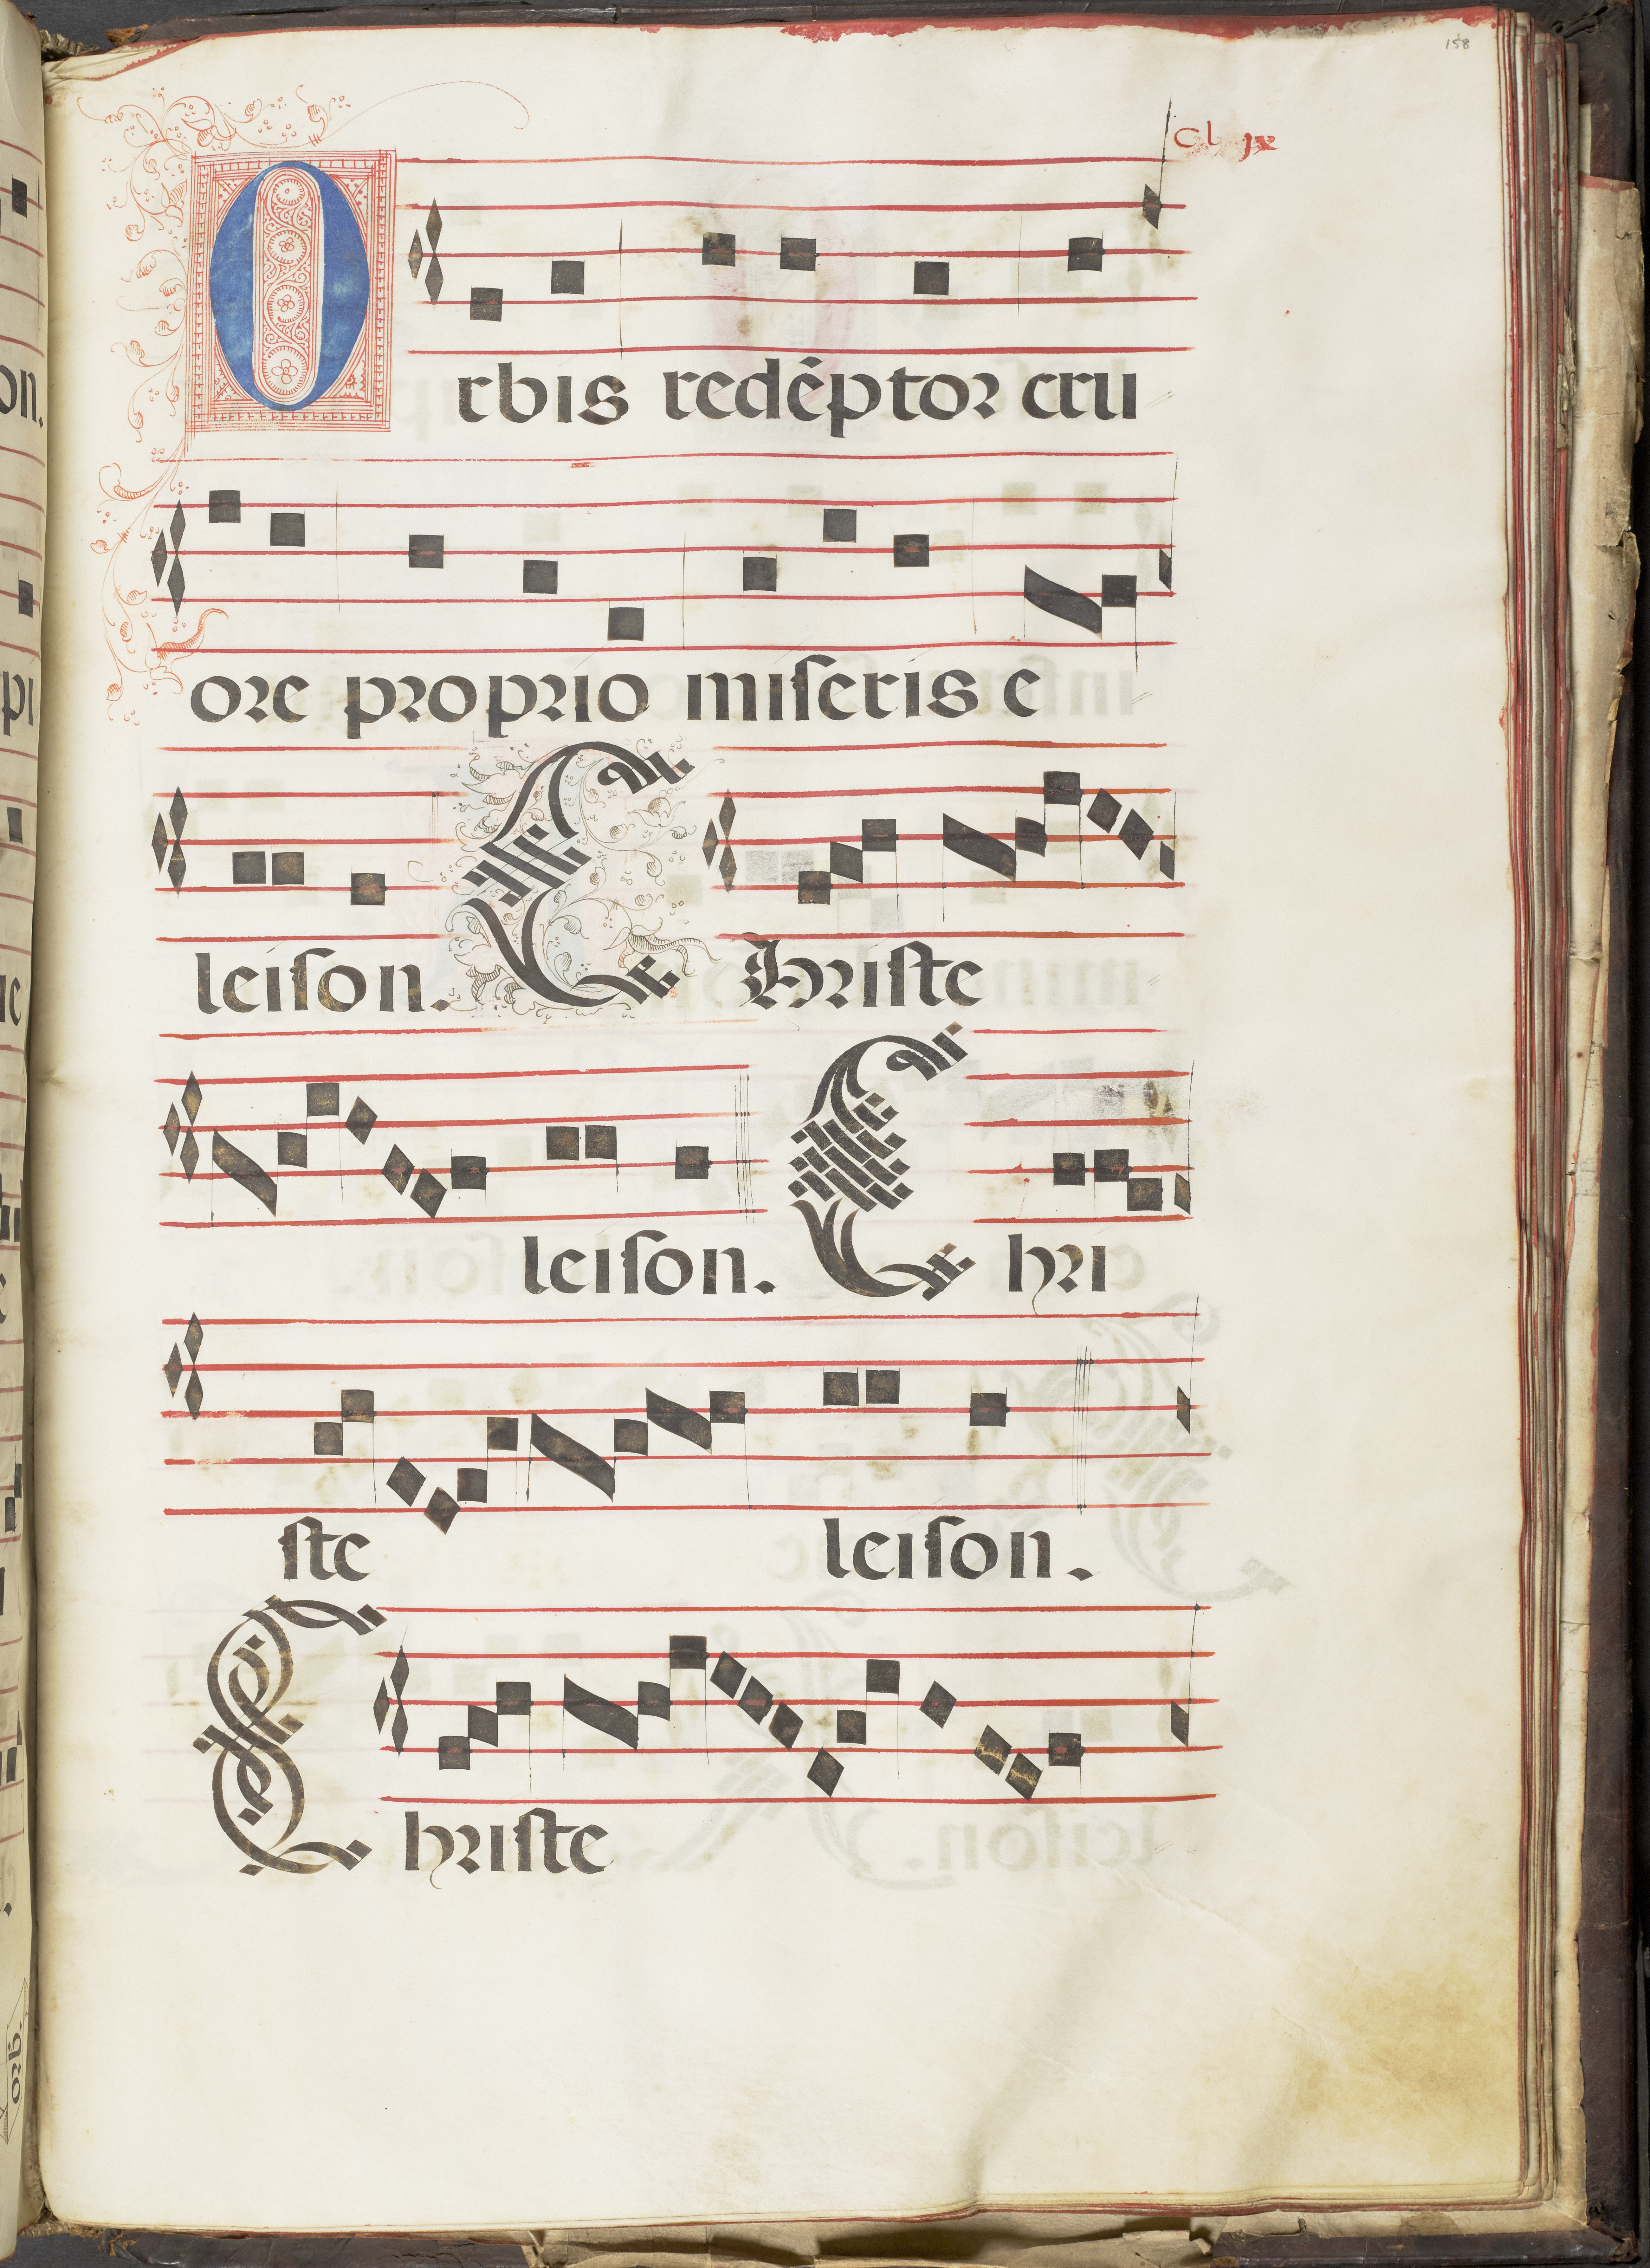 158
Cl ix
Orbis redēptor cru
ore proprio miſeris e
leiſon. Christe
leiſon. Chri
ste leiſon.
Christe